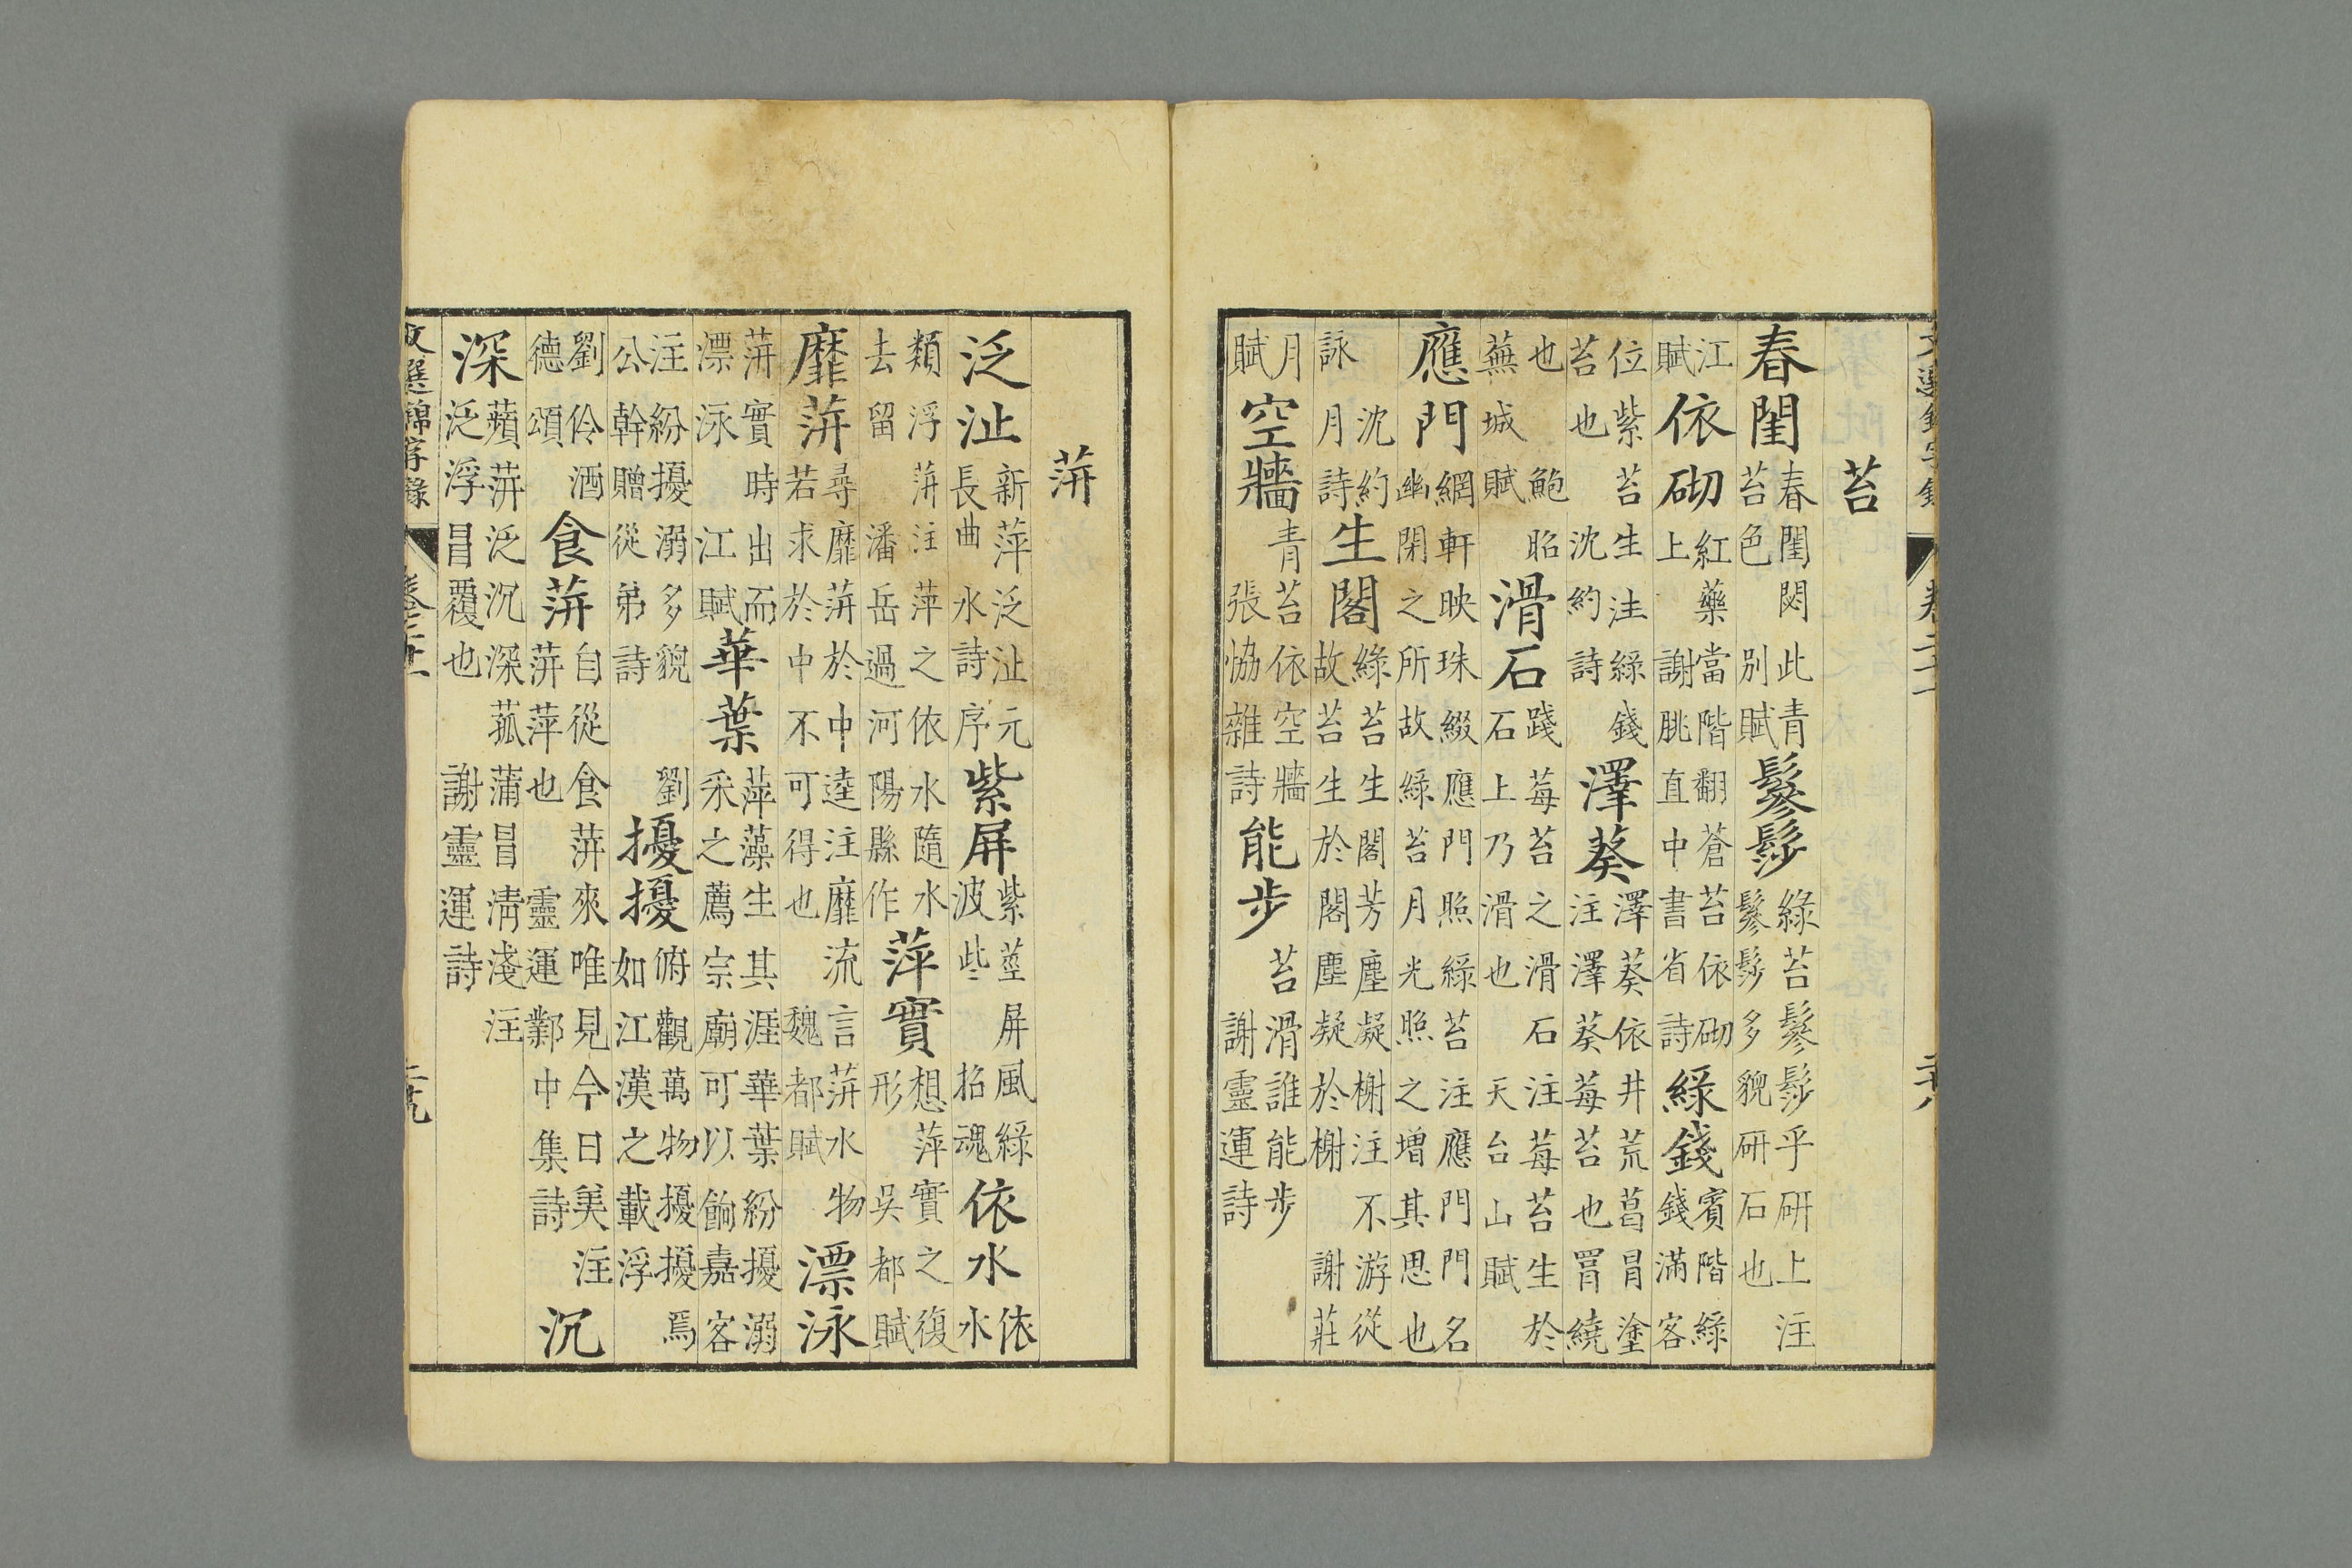 苔
春閨春閨閟此青苔色別賦鬖髿綠苔鬖髿乎研上注鬖髿多貌研石也
江賦依砌紅藥當階翻蒼苔依砌上謝朓直中書省詩綠錢賓階綠錢滿客
位紫苔生注綠錢苔也沈約詩澤葵澤葵依井荒葛冐塗注澤葵莓苔也罥繞
也鮑昭蕪城賦滑石踐莓苔之滑石注莓苔生於石上乃滑也天台山賦
應門網軒映珠綴應門照綠苔注應門門名幽閉之所故綠苔月光照之增其思也
沈約詠月詩生閣綠苔生閣芳塵凝榭注不游從故苔生於閣塵凝於榭謝莊
月賦空牆青苔依空牆張恊雜詩能步苔滑誰能步謝靈運詩
蓱
泛沚新萍泛沚元長曲水詩序紫屏紫莖屏風綠波些招魂依水依水
類浮蓱注萍之依水隨水去留潘岳過河陽縣作萍實想萍實之復形吳都賦
靡蓱尋靡蓱於中逵注靡流言蓱水物若求於中不可得也魏都賦漂泳
蓱實時出而漂泳江賦華葉萍藻生其涯華葉紛擾溺采之薦宗廟可以餉嘉客
注紛擾溺多貌劉公幹贈從弟詩擾擾俯觀萬物擾擾焉如江漢之載浮
劉伶酒德頌食蓱自從食蓱來唯見今日美注蓱萍也靈運鄴中集詩沉
深蘋蓱泛沉深菰蒲冒清淺注泛浮冒覆也謝靈運詩
文選錦字錄